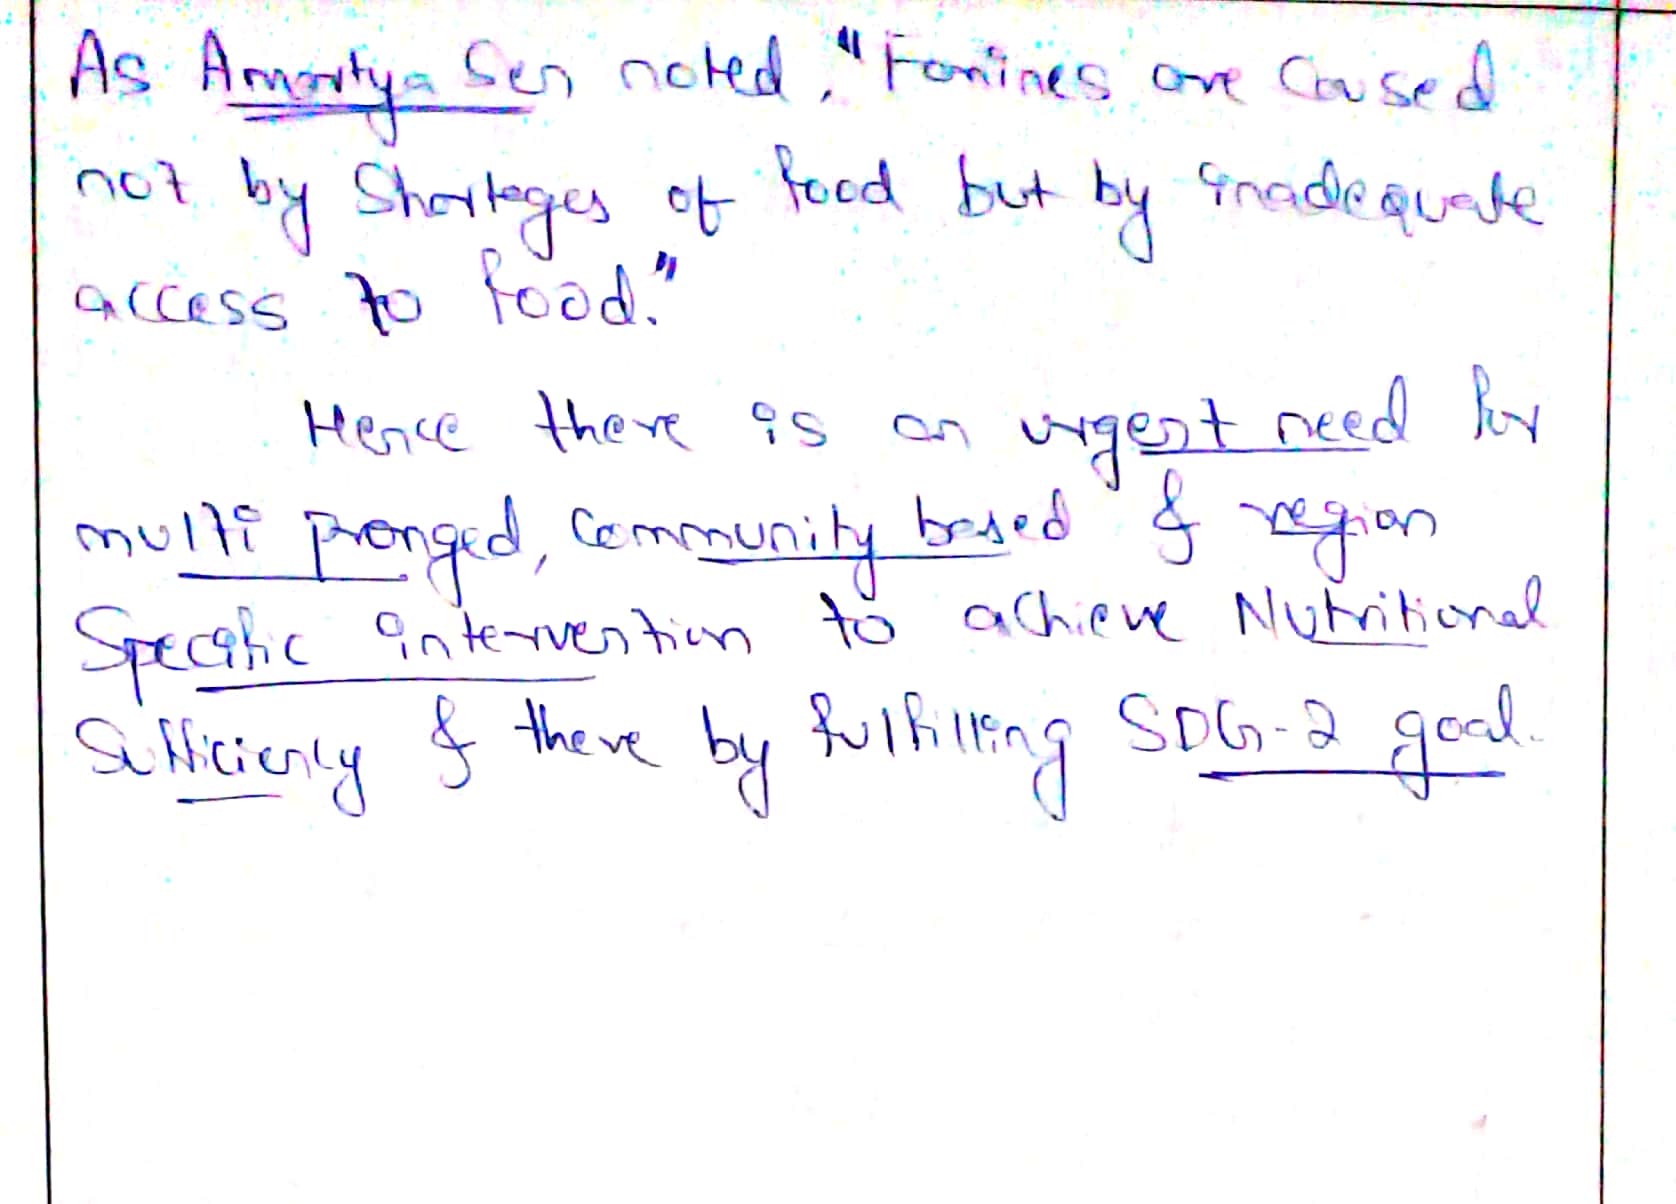 As Amartya Sen noted, "Famines are caused
not by Shortages of food but by inadequate
access to food."
Hence there is an urgent need for
multi pronged, Community based & region
Specific intervention to achieve Nutritional
Sufficiency & there by fulfilling SDG-2 goal.